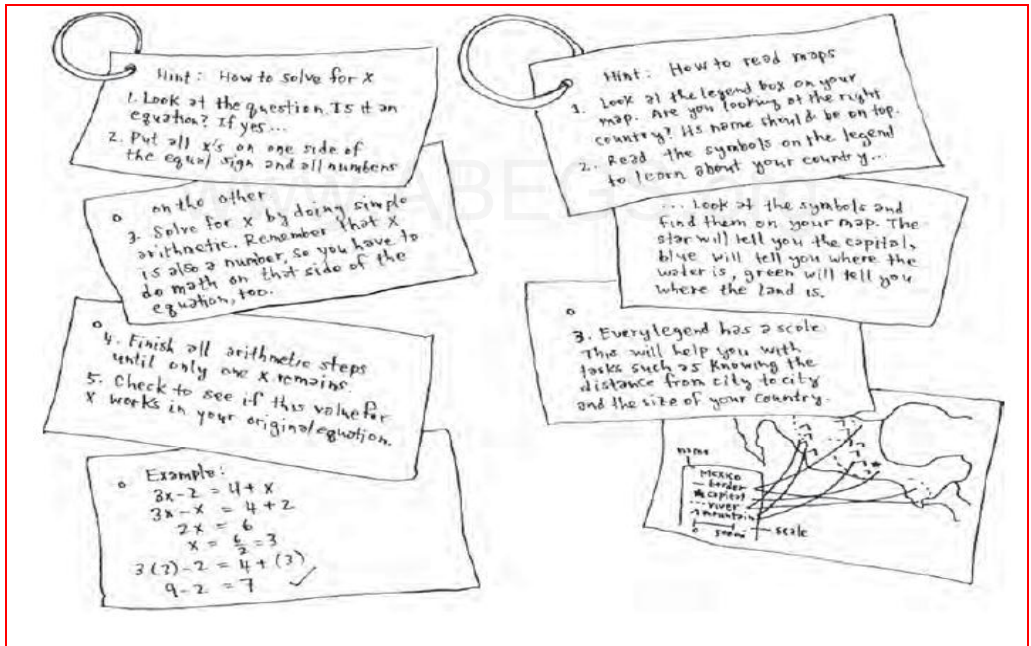 Hint: How to solve for x
1. Look at the question. Is it an
equation? If yes...
2. Put all x's on one side of
the equal sign and all numbers
on the other
3. Solve for x by doing simple
arithmetic. Remember that x
is also a number, so you have to
do math on that side of the
equation, too.
4. Finish all arithmetic steps
until only one x remains.
5. Check to see if this value for
x works in your original equation.
Example:
3x-2 = 4+x
3x-x = 4+2
2x = 6
x = 6/2 = 3
3(3)-2 = 4+(3)
9-2 = 7 ✓
Hint: How to read maps
1. Look at the legend box on your
map. Are you looking at the right
country? Its name should be on top.
2. Read the symbols on the legend
to learn about your country...
... Look at the symbols and
find them on your map. The
star will tell you the capital,
blue will tell you where the
water is, green will tell you
where the land is.
3. Every legend has a scale
This will help you with
tasks such as knowing the
distance from city to city
and the size of your country.
name
Mexico
border
★ capital
river
mountain
0
scale
www.ABEGS.org